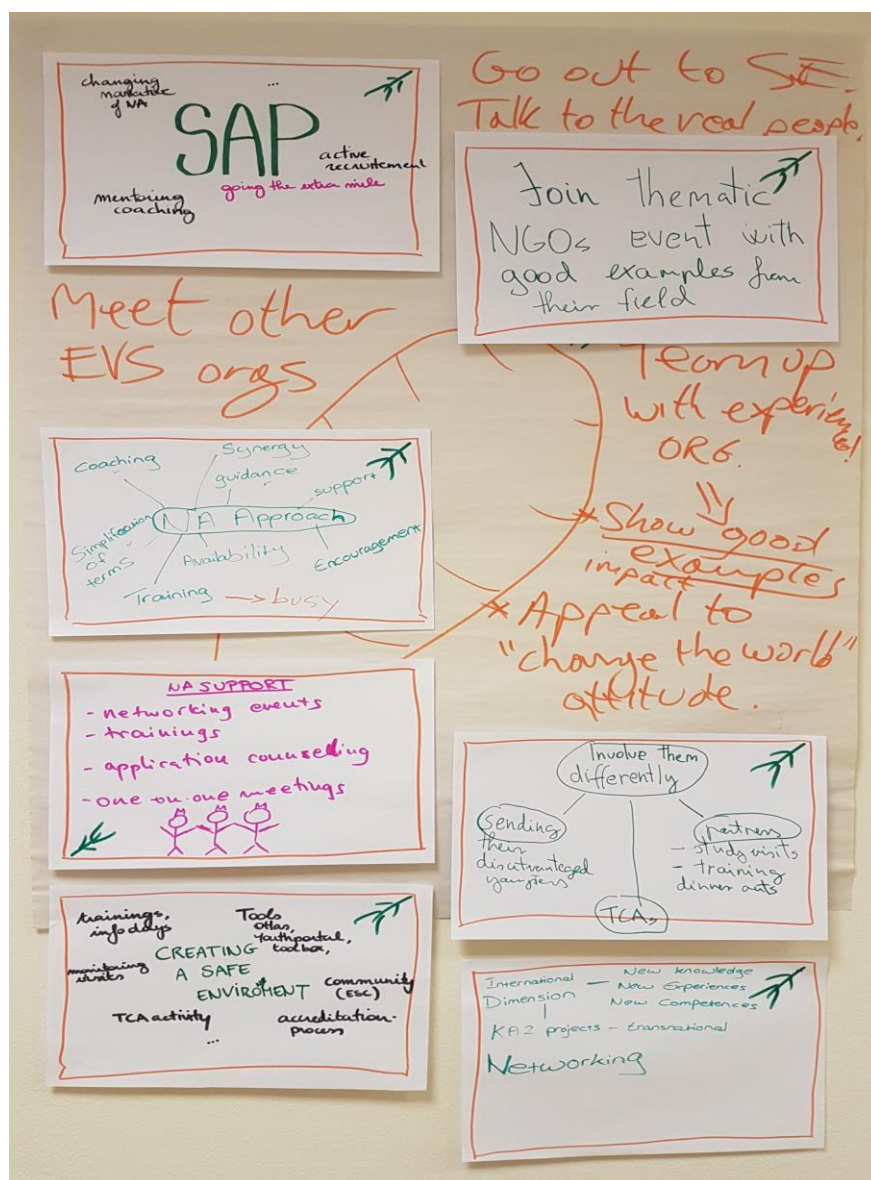 changing
narrative
of NA
...
SAP
active
recruitement
going the extra mile
mentoring
coaching
Go out to
Talk to the real people.
Join thematic
NGOs event with
good examples from
their field
Meet other
EVS orgs
Team up
with experien
ORG.
* Show good
examples
impact
* Appeal to
"change the world"
attitude.
Coaching
Synergy
guidance
support
NA Approach
Simplification
of
terms
Availability
Encouragement
Training → busy
NA SUPPORT
- networking events
- trainings
- application counselling
- one on one meetings
Involve them
differently
Sending
their
disatvanteged
partners
- study visits
- training
dinner outs
TCAs
trainings,
info days
Tools
Otlas,
Youthportal,
toolbox,
CREATING
A SAFE
ENVIROMENT
monitoring
visits
community
(ESC)
TCA activity
...
accreditation-
process
International
Dimension
New knowledge
New Experiences
New Competences
KA2 projects - transnational
Networking